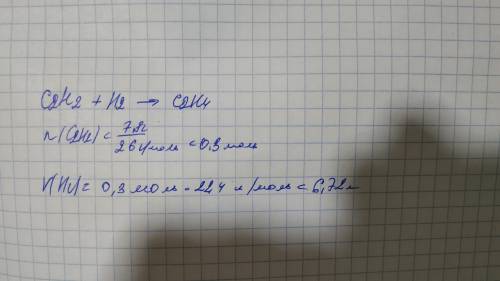 C2H2 + H2 → C2H4
n(C2H2) = 7,8г / 26 г/моль = 0,3 моль
V(H2) = 0,3 моль · 22,4 л/моль = 6,72 л